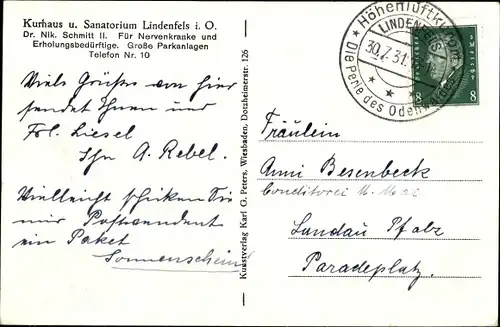 Kurhaus u. Sanatorium Lindenfels i. O.
Dr. Nik. Schmitt II. Für Nervenkranke und
Erholungsbedürftige. Große Parkanlagen
Telefon Nr. 10
Viele Grüße von hier
sendet Ihnen und
Frl. Liesel
Ihr A. Rebel.
Vielleicht schicken Sie
mir Postwendent
ein Paket
Sonnenschein
Kunstverlag Karl G. Peters, Wiesbaden, Dotzheimerstr. 126
Höhenluftkurort
LINDENFELS
30.7.31
Die Perle des Odenwaldes
8 8
Fräulein
Anni Besenbeck
Conditorei
Landau Pfalz
Paradeplatz.